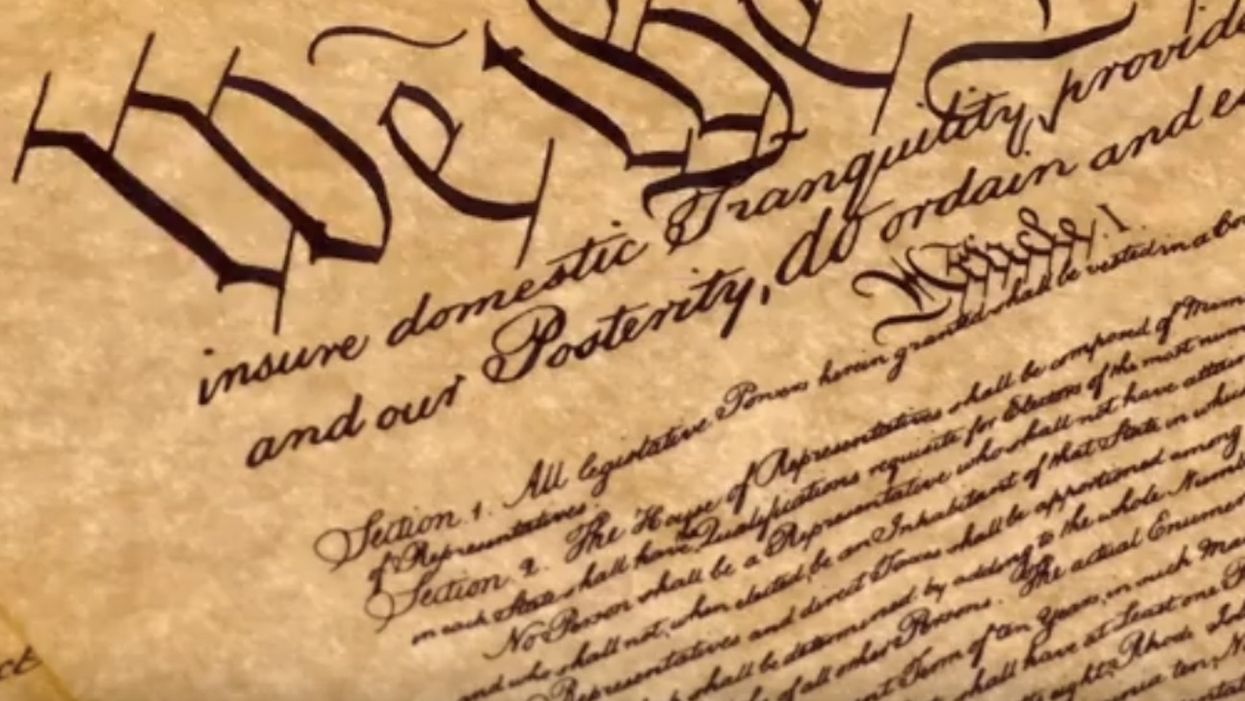 We the Pe
insure domestic Tranquility, provide
and our Posterity, do ordain and es
Article. I.
Section. 1. All legislative Powers herein granted shall be vested in a Con
of Representatives.
Section. 2. The House of Representatives shall be composed of Mem
in each State shall have Qualifications requisite for Electors of the most num
No Person shall be a Representative who shall not have attain
and who shall not, when elected, be an Inhabitant of that State in which
Representatives and direct Taxes shall be apportioned among
shall be determined by adding to the whole Numb
of all other Persons. The actual Enumer
Term of ten Years, in such Man
shall have at Least one R
eight, Rhode Isl
ten, N
ct